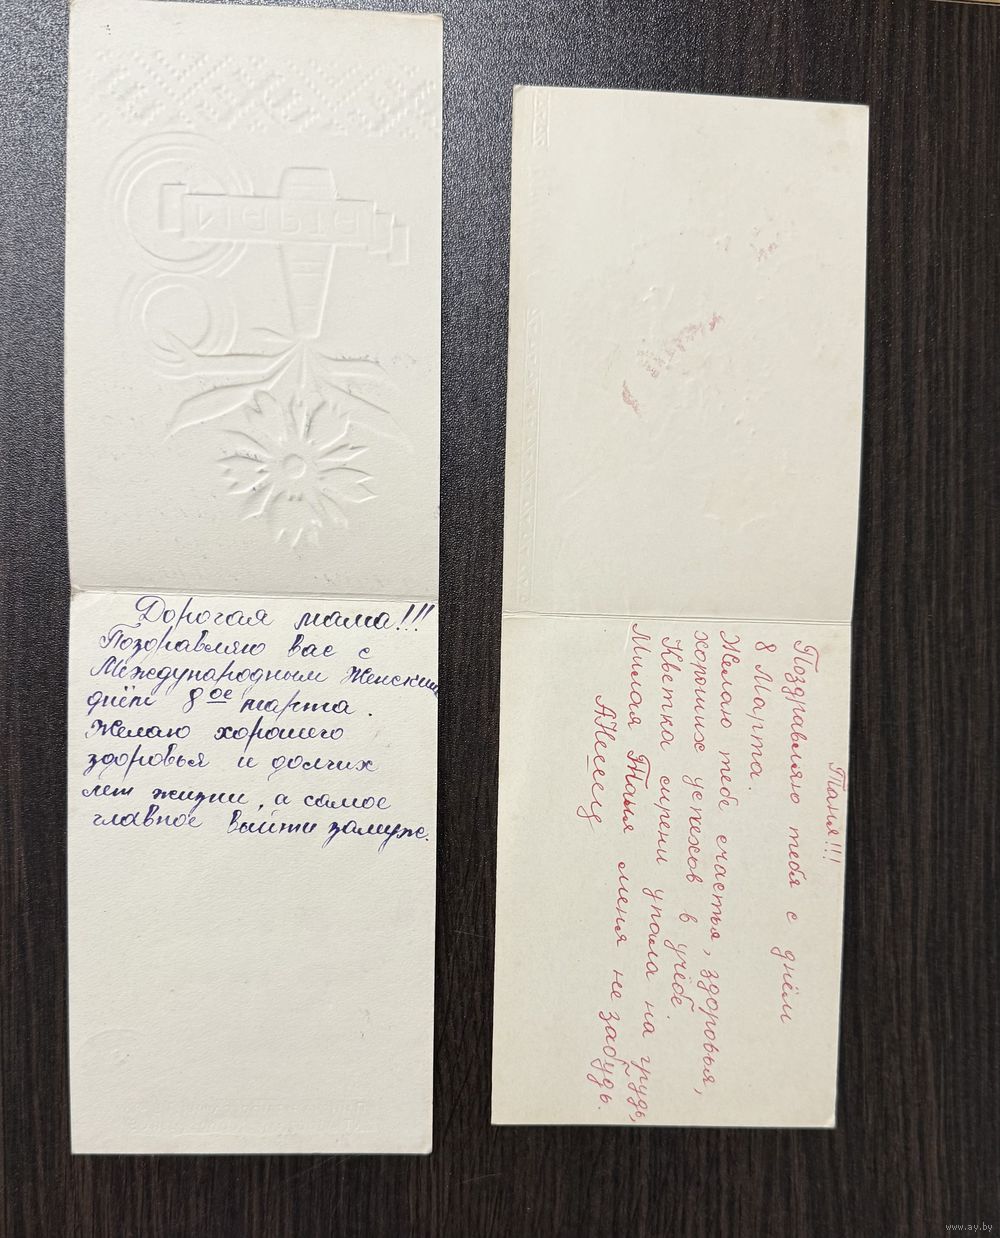 МАРТА
Дорогая мама!!!
Поздравляю вас с
Международным Женским
днём 8ое марта.
Желаю хорошего
здоровья и долгих
лет жизни, а самое
главное выйти замуж.
Таня!!!
Поздравляю тебя с днём
8 Марта.
Желаю тебе счастья, здоровья,
хороших успехов в учёбе.
Кветка сирени упала на грудь,
Милая Таня меня не забудь.
www.ay.by